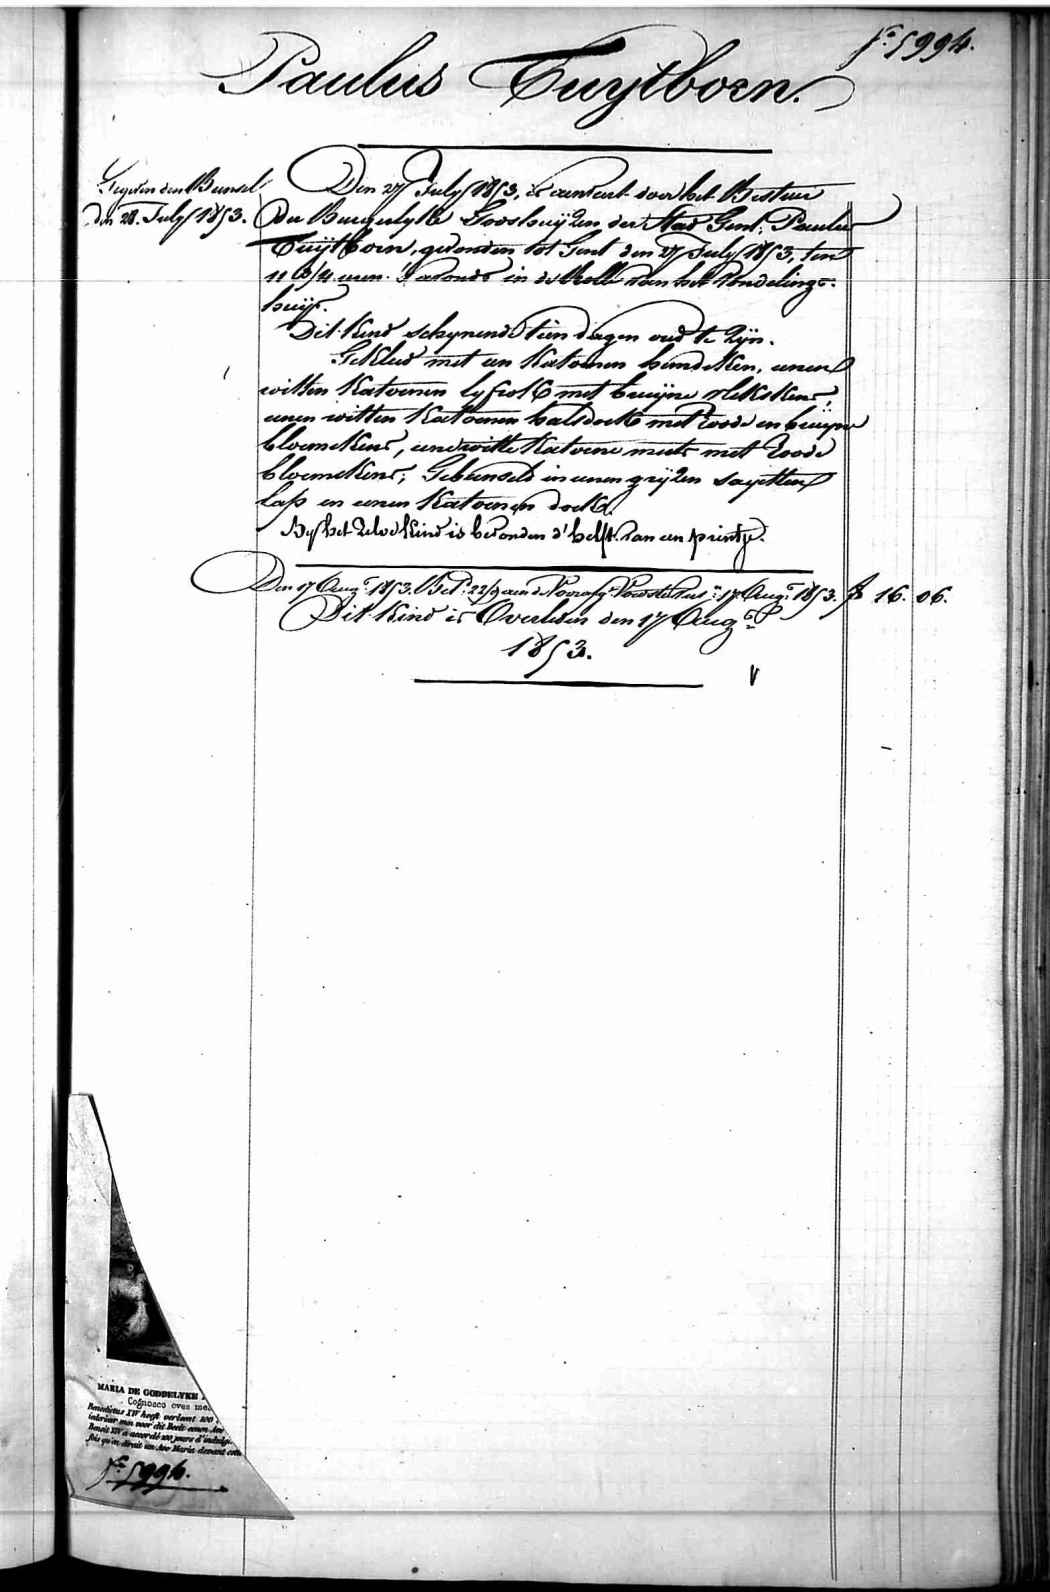 fo. 5994.
Paulus Tuytboen.
Gegeven den Bunsel
den 28. July 1853.
Den 27 July 1853, is aenveert door het Bestuur
Der Burgerlyke Godshuyzen der Stad Gent: Paulus
Tuytboen, gevonden tot Gent den 27 July 1853, ten
11 3/4 uren 's avonds in de Rolle van het Vondelings-
huys.
Dit kind schynende tien dagen oud te zyn.
Gekleed met een katoenen hemdeken, eenen
witten katoenen lyfrok met bruyne vlekskens,
eenen witten katoenen halsdoek met roode en bruyne
bloemekens, eene witte katoene muts met roode
bloemekens; Gebunseld in eenen gryzen sayetten
lap en eenen katoenen doek.
By het zelve kind is bevonden d'helft van een printje.
Den 17 Augt. 1853. Bet. 22/9 aen de 17 Augt. 1853. fs 16. 06.
Dit kind is Overleden den 17 Augt.
1853.
MARIA DE GODDELYKE
Cognosco oves me
Benedictus XIV heeft verleent 100
iederen een voor dit Beeldt eenen Ave
Benoit XIV a accordé 100 jours d'indulg
fois qu'on dirait un Ave Maria devant cette
fo. 5994.